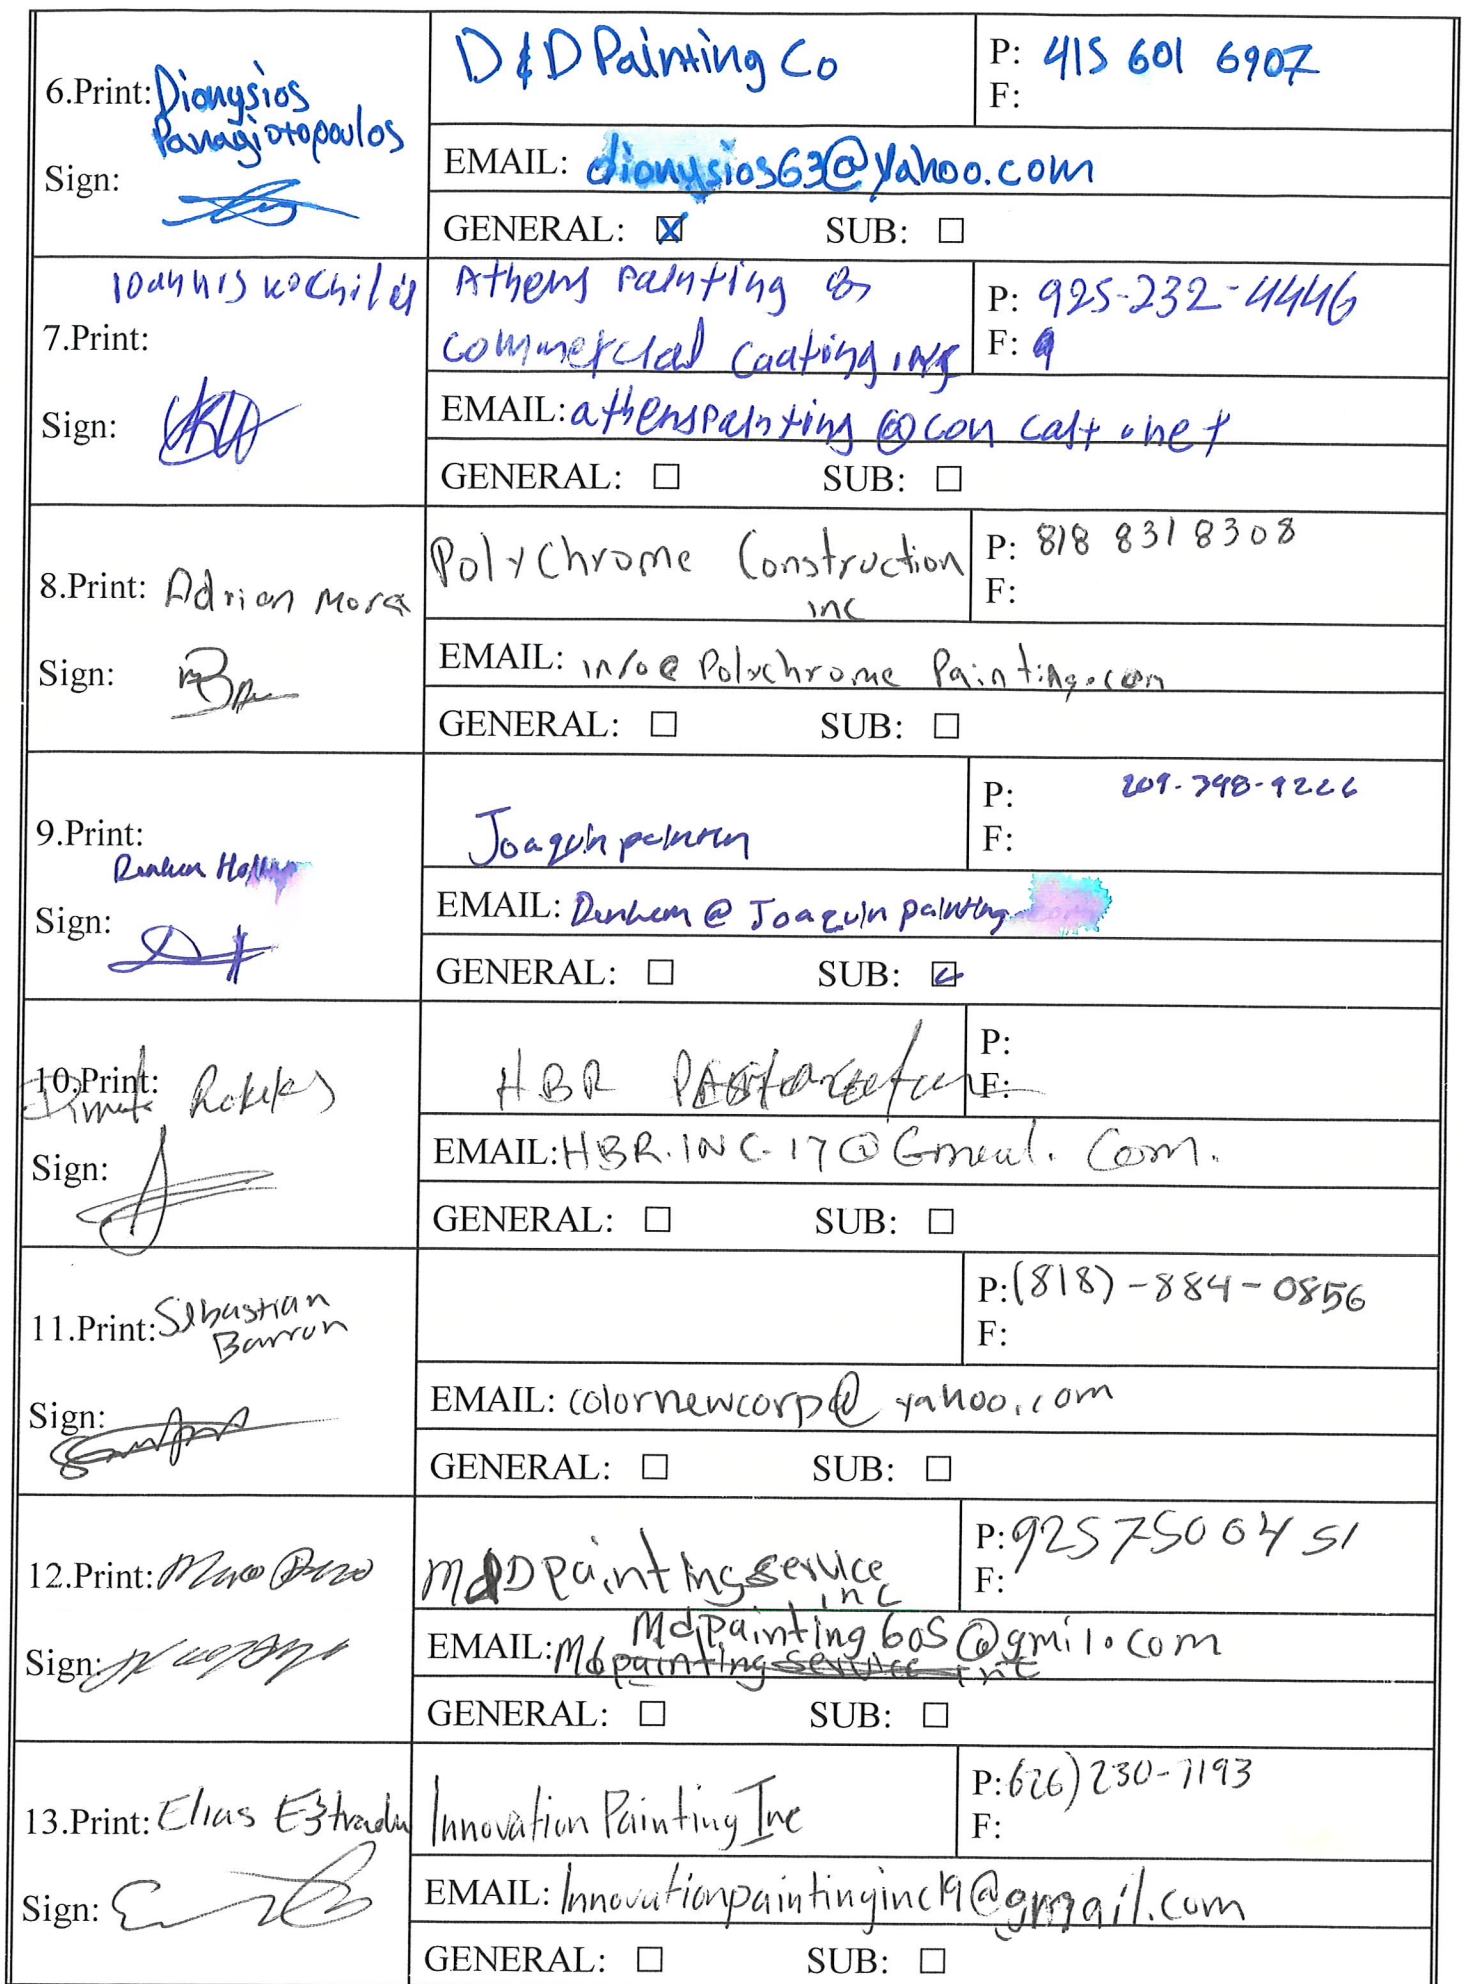 6.Print: Dionysios
Panagiotopoulos
Sign:
D & D Painting Co
P: 415 601 6907
F:
EMAIL: dionysios63@yahoo.com
GENERAL: ☒ SUB: ☐
7.Print: Ioannis
Sign:
Athens Painting &
Commercial Coating inc
P: 925-232-4446
F:
EMAIL: athenspainting@comcast.net
GENERAL: ☐ SUB: ☐
8.Print: Adrian Mora
Sign:
PolyChrome Construction
inc
P: 818 831 8308
F:
EMAIL: info@PolychromePainting.com
GENERAL: ☐ SUB: ☐
9.Print:
Sign:
Joaquin painting
P:
F:
EMAIL: Denham@Joaquinpainting.com
GENERAL: ☐ SUB: ☑
10.Print:
Sign:
HBR
P:
F:
EMAIL: HBR.INC.17@Gmail.Com.
GENERAL: ☐ SUB: ☐
11.Print: Sebastian
Barron
Sign:
P: (818)-884-0856
F:
EMAIL: colornewcorp@yahoo.com
GENERAL: ☐ SUB: ☐
12.Print:
Sign:
M&D painting service
inc
P: 925 750 04 51
F:
Mdpainting605@gmil.com
EMAIL: Mdpainting service inc
GENERAL: ☐ SUB: ☐
13.Print: Elias Estrada
Sign:
Innovation Painting Inc
P: 626) 230-7193
F:
EMAIL: Innovationpaintinginc19@gmail.com
GENERAL: ☐ SUB: ☐